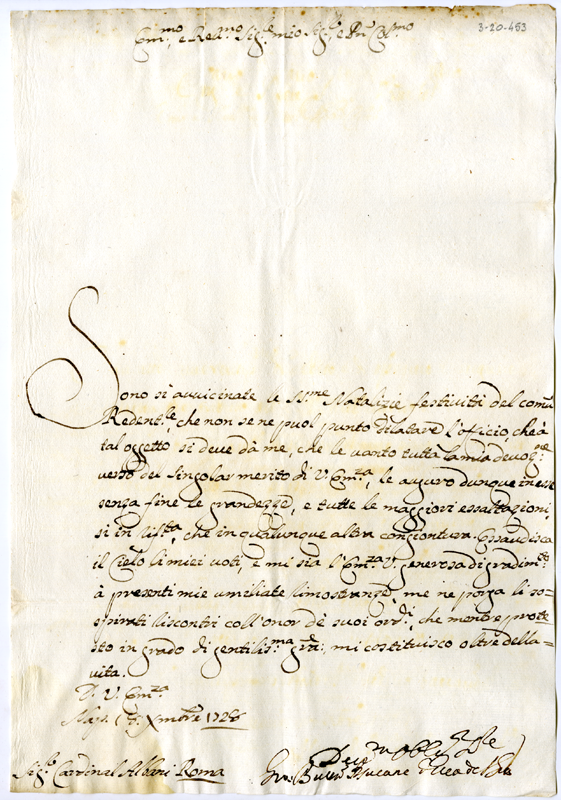 3-20-453
Em.mo, e Re.mo Sig.e mio Sig.e e P.ne Col.mo
Sono si avvicinate le SS.me Natalizie festività del comũ
Redent.re che non se ne puol punto dilatare l'officio, che à
tal oggetto si deve dà me, che le vanto tutta la mia devoz.ne
verso del singolar merito di V. Em.za, le auguro dunque in esse
senza fine le grandezze, e tutte le maggiori essaltazioni,
si in qualunque altra congiontura. Essaudisca
il Cielo li miei voti, e mi sia l'Em.za V. generosa di gradim.to
à presenti mie umiliate rimostranze, me ne porga li so-
spirati riscontri coll'onor dè suoi ord.i, che mentre prote
sto in grado di gentilis.ma gra: mi costituisco oltre della
vita.
D. V. Em.za
Nap. Xmbre 1728
Sig.r Cardinal Albani Roma